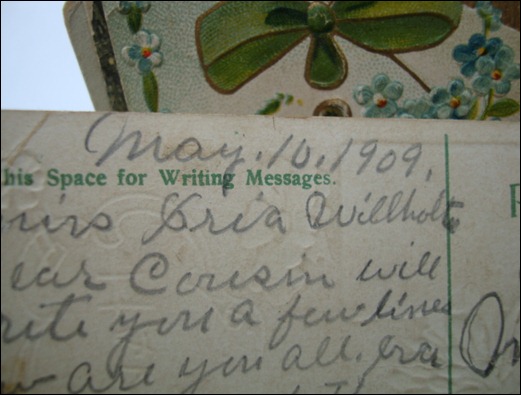 May. 10. 1909,
his Space for Writing Messages.
Willholt
ear Cousin will
rite you a few lines
w are you all.